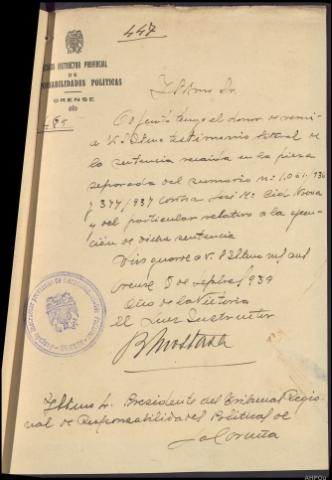 447
JUZGADO INSTRUCTOR PROVINCIAL
DE
RESPONSABILIDADES POLITICAS
ORENSE
Iltmo Sr.
Adjunto tengo el honor de remi-
tir a V. Iltma testimonio literal de
la sentencia recaida en la pieza
separada del sumario nº 1.061/936
y 377/937 contra José Mª Cid
y del particular relativo a la ejecu-
ción de dicha sentencia
Dios guarde a V. Iltma
Orense 5 de Septbre 1939
Año de la Victoria
El Juez Instructor
Iltmo Sr. Presidente del Tribunal Regio
nal de Responsabilidades Politicas de
La Coruña
AHPOu